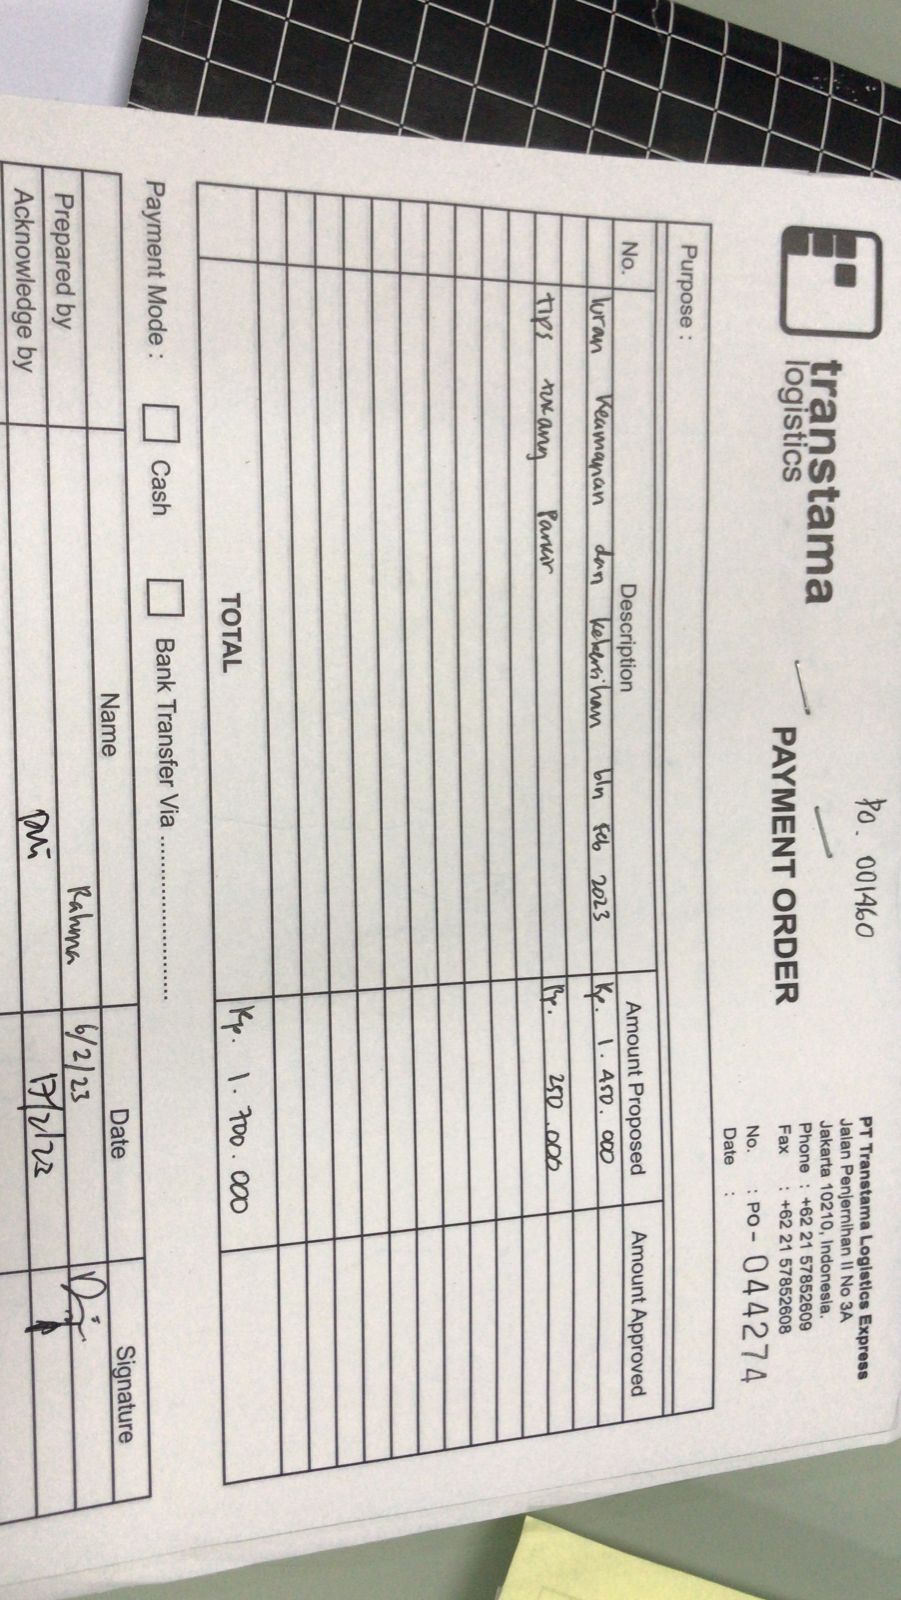 PO. 001460
transtama
logistics
PAYMENT ORDER
PT Transtama Logistics Express
Jalan Penjernihan II No 3A
Jakarta 10210, Indonesia.
Phone : +62 21 57852609
Fax : +62 21 57852608
No. : PO - 044274
Date :
Purpose :
No. Description Amount Proposed Amount Approved
Iuran keamanan dan kebersihan bln Feb 2023 Rp. 1.450.000
tips tukang parkir Rp. 250.000
TOTAL Rp. 1.700.000
Payment Mode : Cash Bank Transfer Via ........................
Name Date Signature
Prepared by Rahma 6/2/23
Acknowledge by